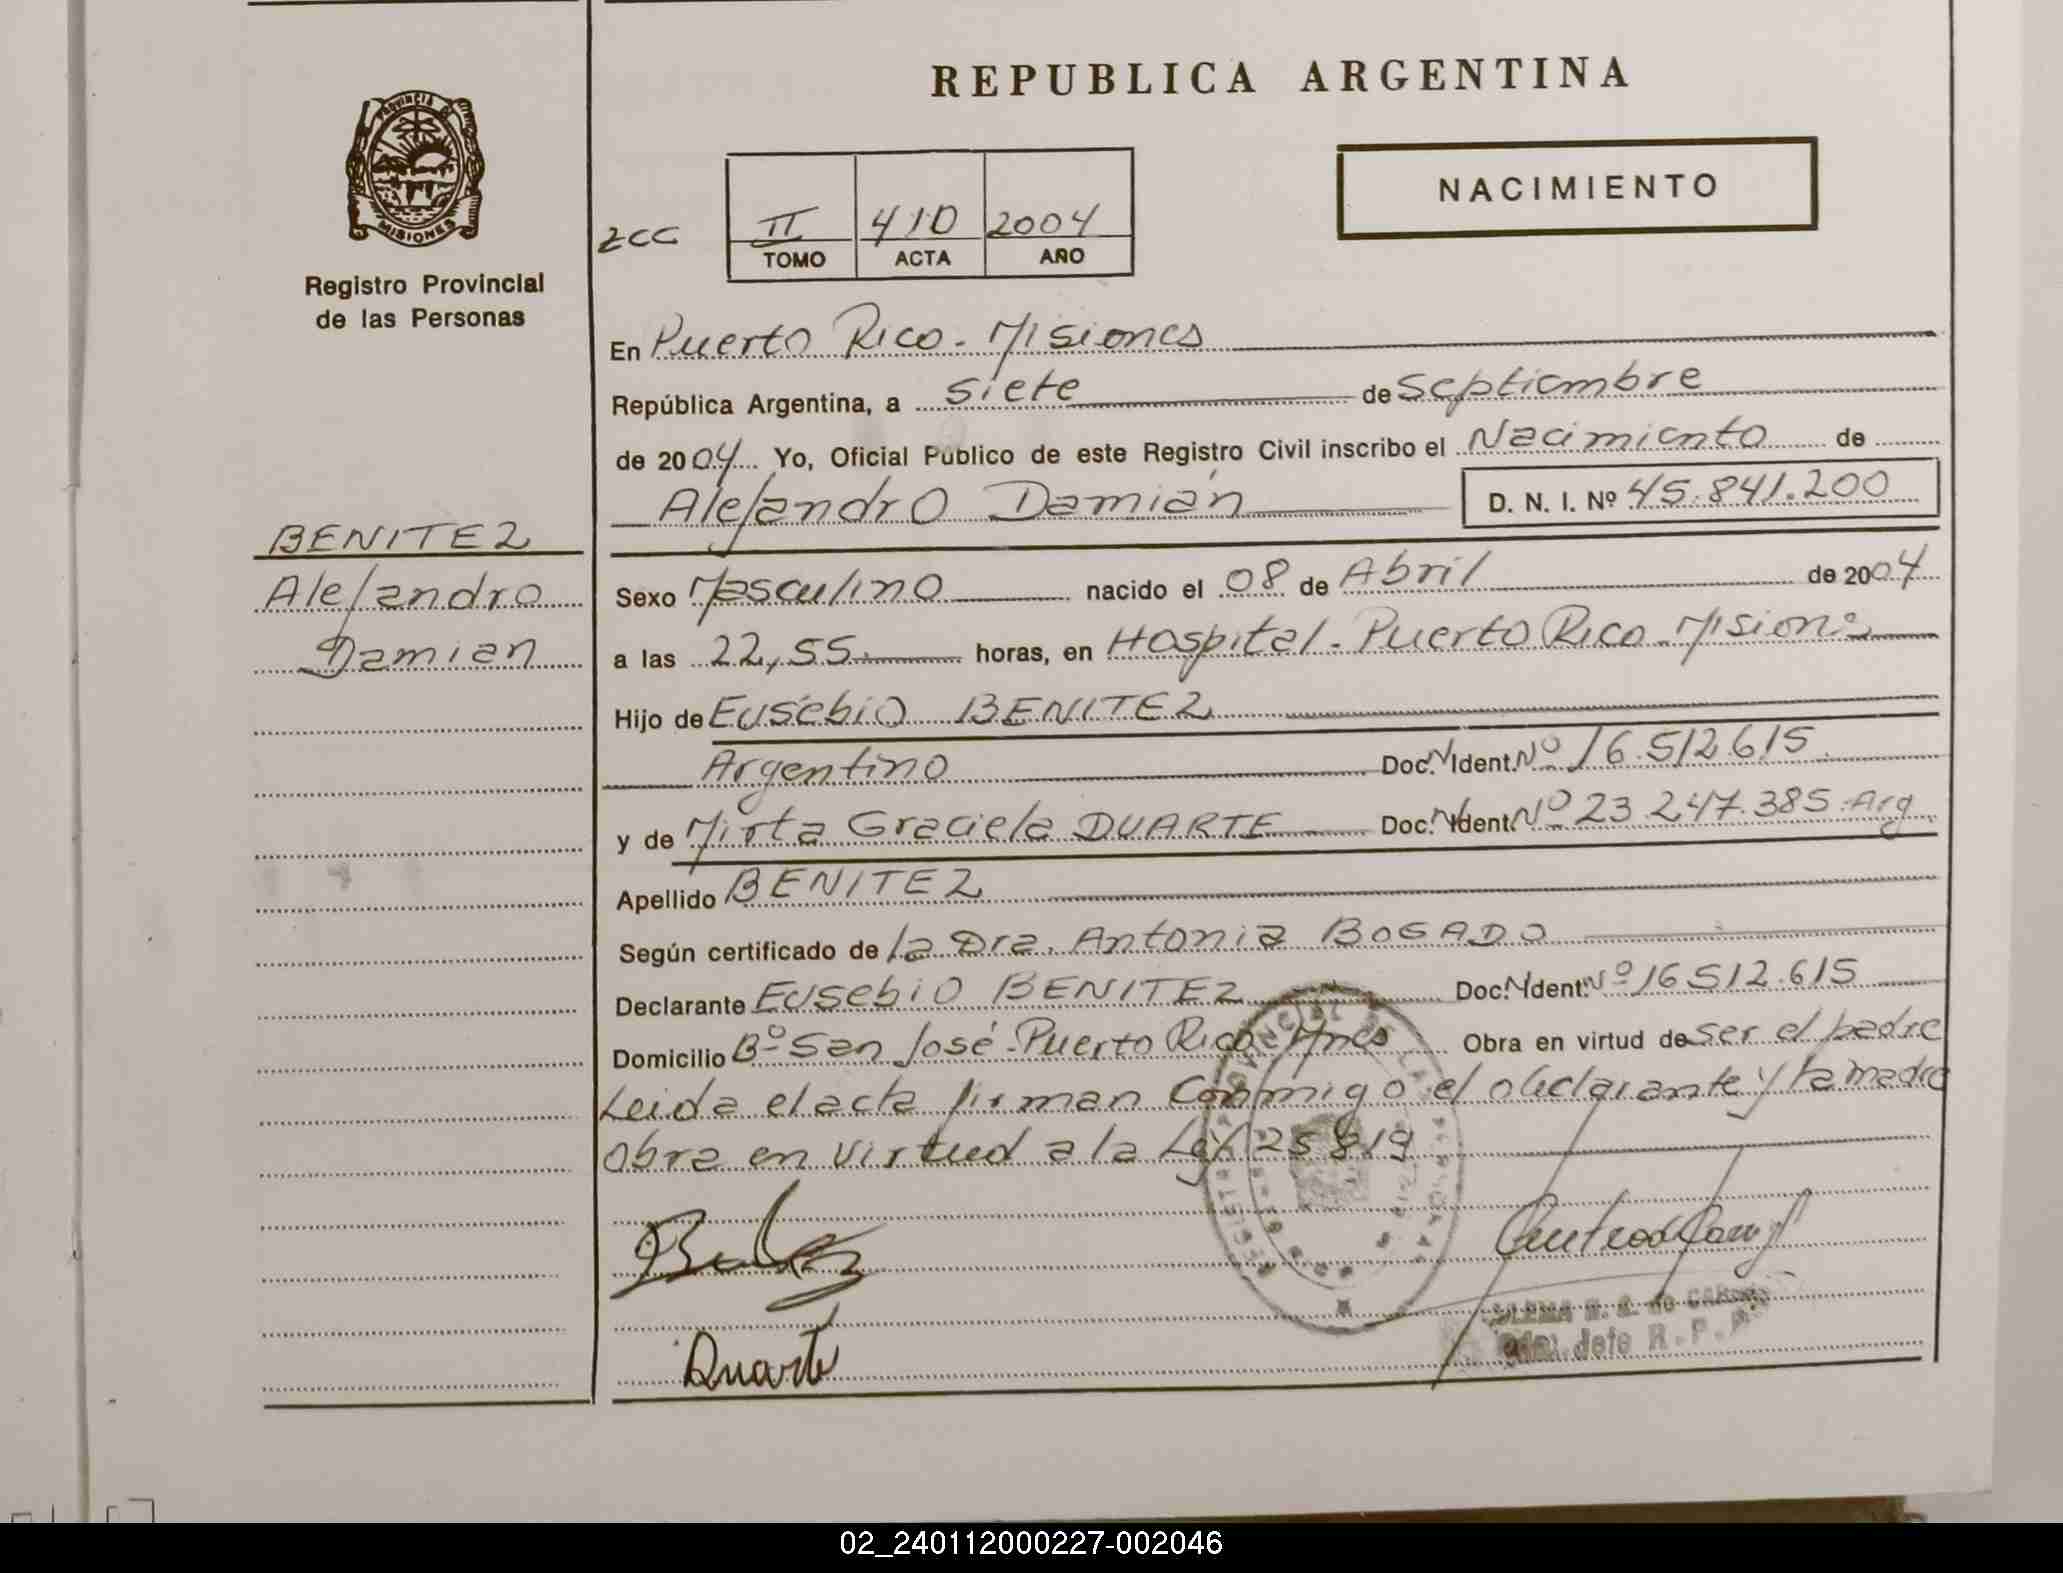 REPUBLICA ARGENTINA
NACIMIENTO
PROVINCIA DE
MISIONES
Registro Provincial
de las Personas
2CC
II 410 2004
TOMO ACTA AÑO
En Puerto Rico - Misiones
República Argentina, a siete de Septiembre
de 2004 Yo, Oficial Público de este Registro Civil inscribo el Nacimiento de
Alejandro Damián D. N. I. Nº 45.841.200
BENITEZ
Alejandro
Damian
Sexo Masculino nacido el 08 de Abril de 2004
a las 22,55 horas, en Hospital - Puerto Rico - Misiones
Hijo de Eusebio BENITEZ
Argentino Doc. N Ident. Nº 16.512.615
y de Mirta Graciela DUARTE Doc. N Ident. Nº 23.247.385 Arg
Apellido BENITEZ
Según certificado de la Dra. Antonia BOGADO
Declarante Eusebio BENITEZ Doc. N Ident. Nº 16.512.615
Domicilio Bº San José - Puerto Rico Mnes Obra en virtud de ser el padre
Leida el acta firman conmigo el declarante y la madre
obra en virtud a la Ley 25819
Duarte
Jefe R.P.P.
02_240112000227-002046